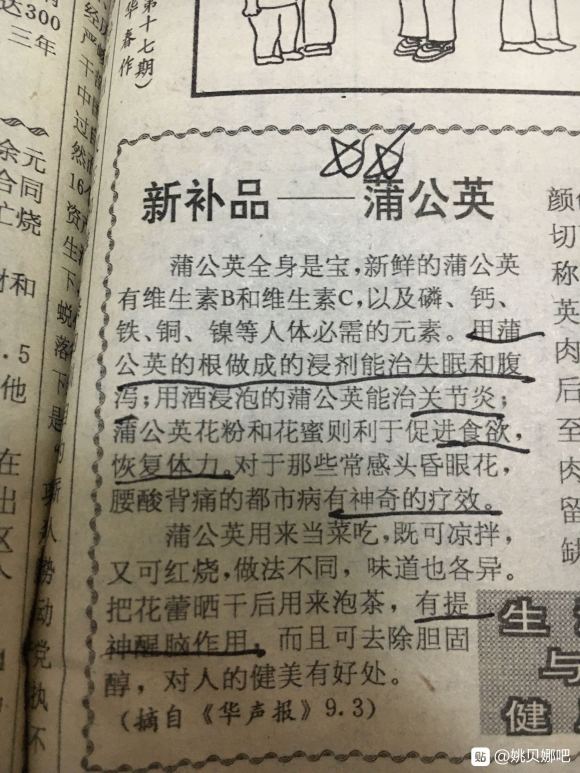 第十七期)
华春作
达300
三年
余元
合同
亡烧
材和
.5
他
在
出
区
新补品——蒲公英
蒲公英全身是宝,新鲜的蒲公英
有维生素B和维生素C,以及磷、钙、
铁、铜、镍等人体必需的元素。用蒲
公英的根做成的浸剂能治失眠和腹
泻;用酒浸泡的蒲公英能治关节炎;
蒲公英花粉和花蜜则利于促进食欲,
恢复体力。对于那些常感头昏眼花,
腰酸背痛的都市病有神奇的疗效。
蒲公英用来当菜吃,既可凉拌,
又可红烧,做法不同,味道也各异。
把花蕾晒干后用来泡茶,有提
神醒脑作用,而且可去除胆固
醇,对人的健美有好处。
(摘自《华声报》9.3)
颜
切
称
英
肉
后
至
肉
留
缺
生
与
健
贴 @姚贝娜吧